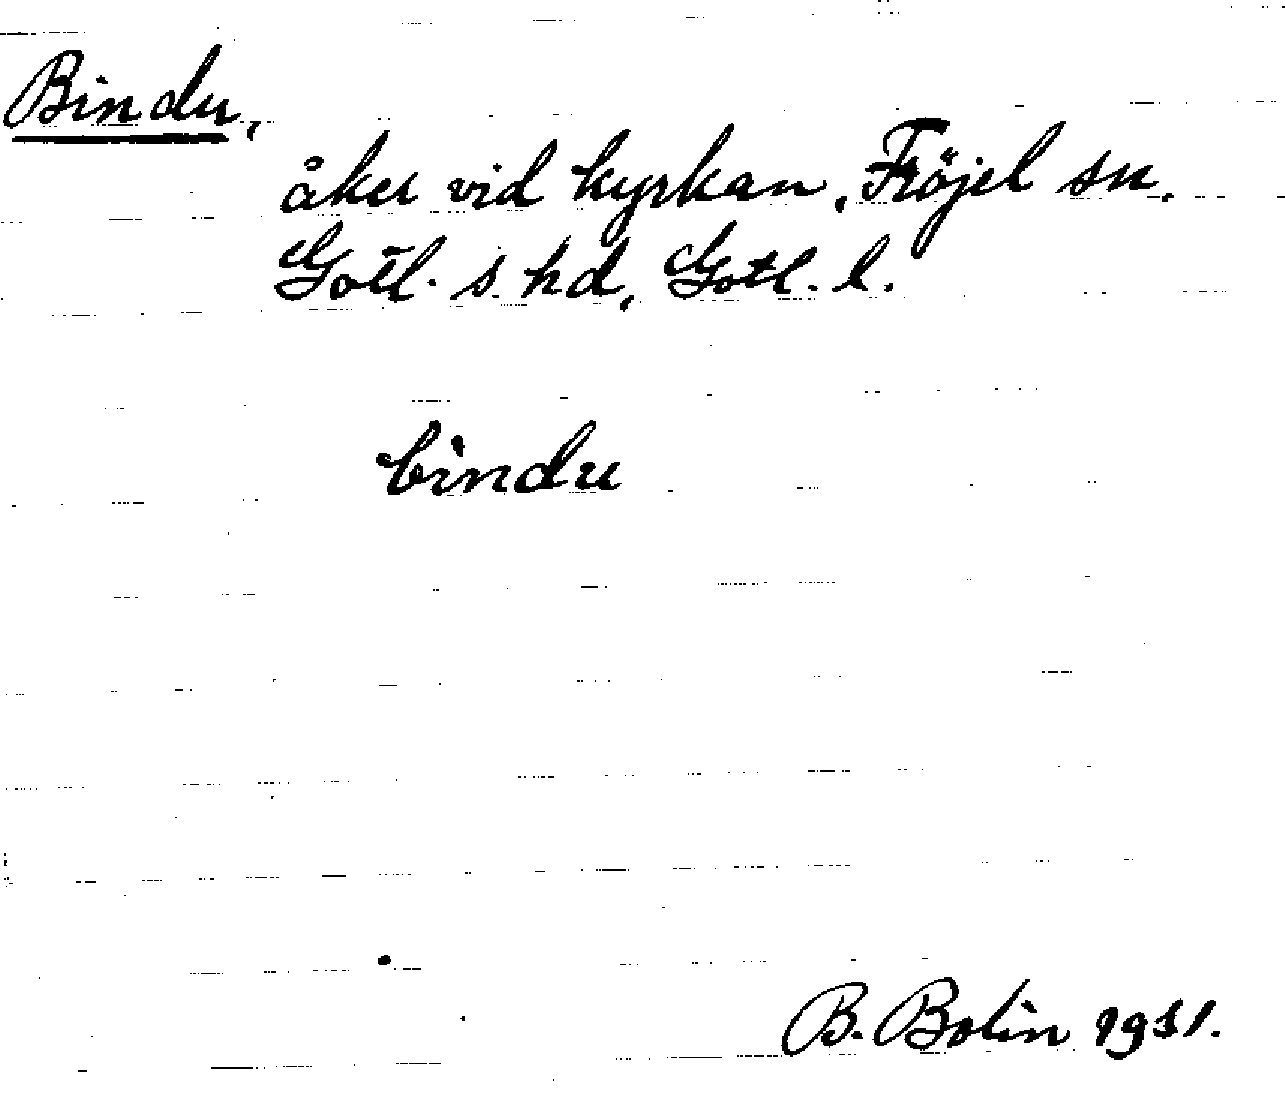 Bindu,
åker vid kyrkan, Fröjel sn.
Gotl. s. hd, Gotl. l.
bindu
B. Bolin 1931.